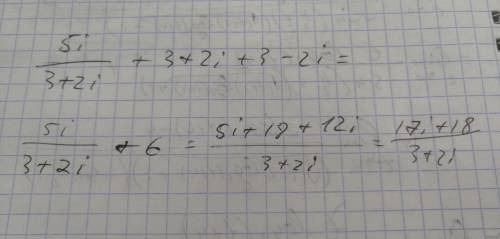 5i/(3+2i) + 3+2i + 3-2i =
5i/(3+2i) + 6 = (5i+18+12i)/(3+2i) = (17i+18)/(3+2i)